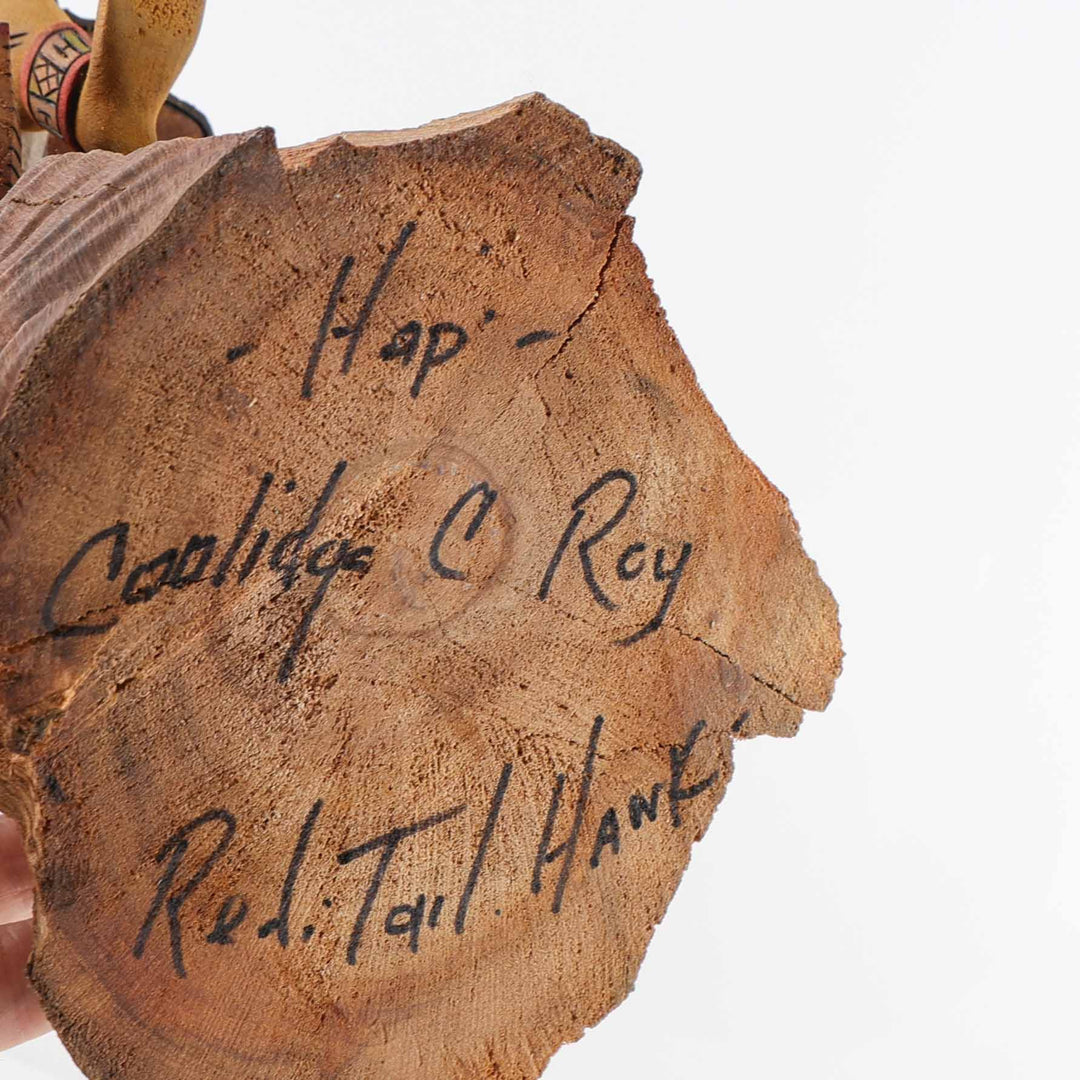 - Hap' -
Coolidge C Roy
Red. Tail. HAWK'